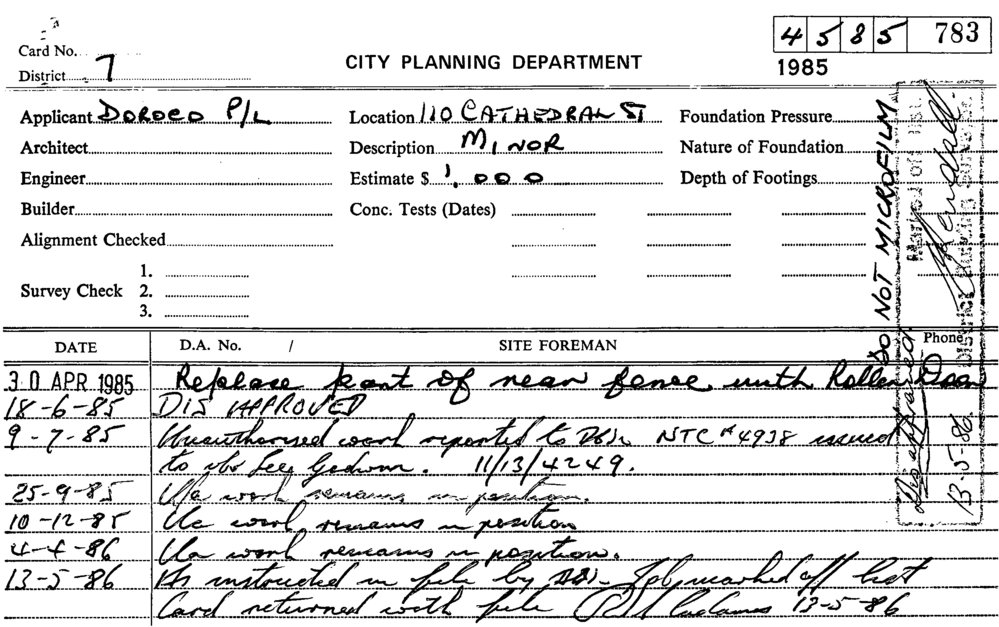 4585 783
Card No.
CITY PLANNING DEPARTMENT
1985
District 7
Applicant DOROCO P/L Location 110 CATHEDRAL ST Foundation Pressure
Architect Description MINOR Nature of Foundation
Engineer Estimate $ 1,000 Depth of Footings
Builder Conc. Tests (Dates)
Alignment Checked
1.
Survey Check 2.
3.
DO NOT MICROFILM
Marked Off List
Disapproved
13-5-86
DATE D.A. No. / SITE FOREMAN Phone
30 APR 1985 Replace part of rear fence with Roller Door
18-6-85 DISAPPROVED
9-7-85 Unauthorised work reported to NTC # 4938 issued
to Lee 11/13/4249.
25-9-85 Ua work remains in position.
10-12-85 Ua work remains in position
4-4-86 Ua work remains in position.
13-5-86 As instructed in file by Job marked off list
Card returned with file 13-5-86